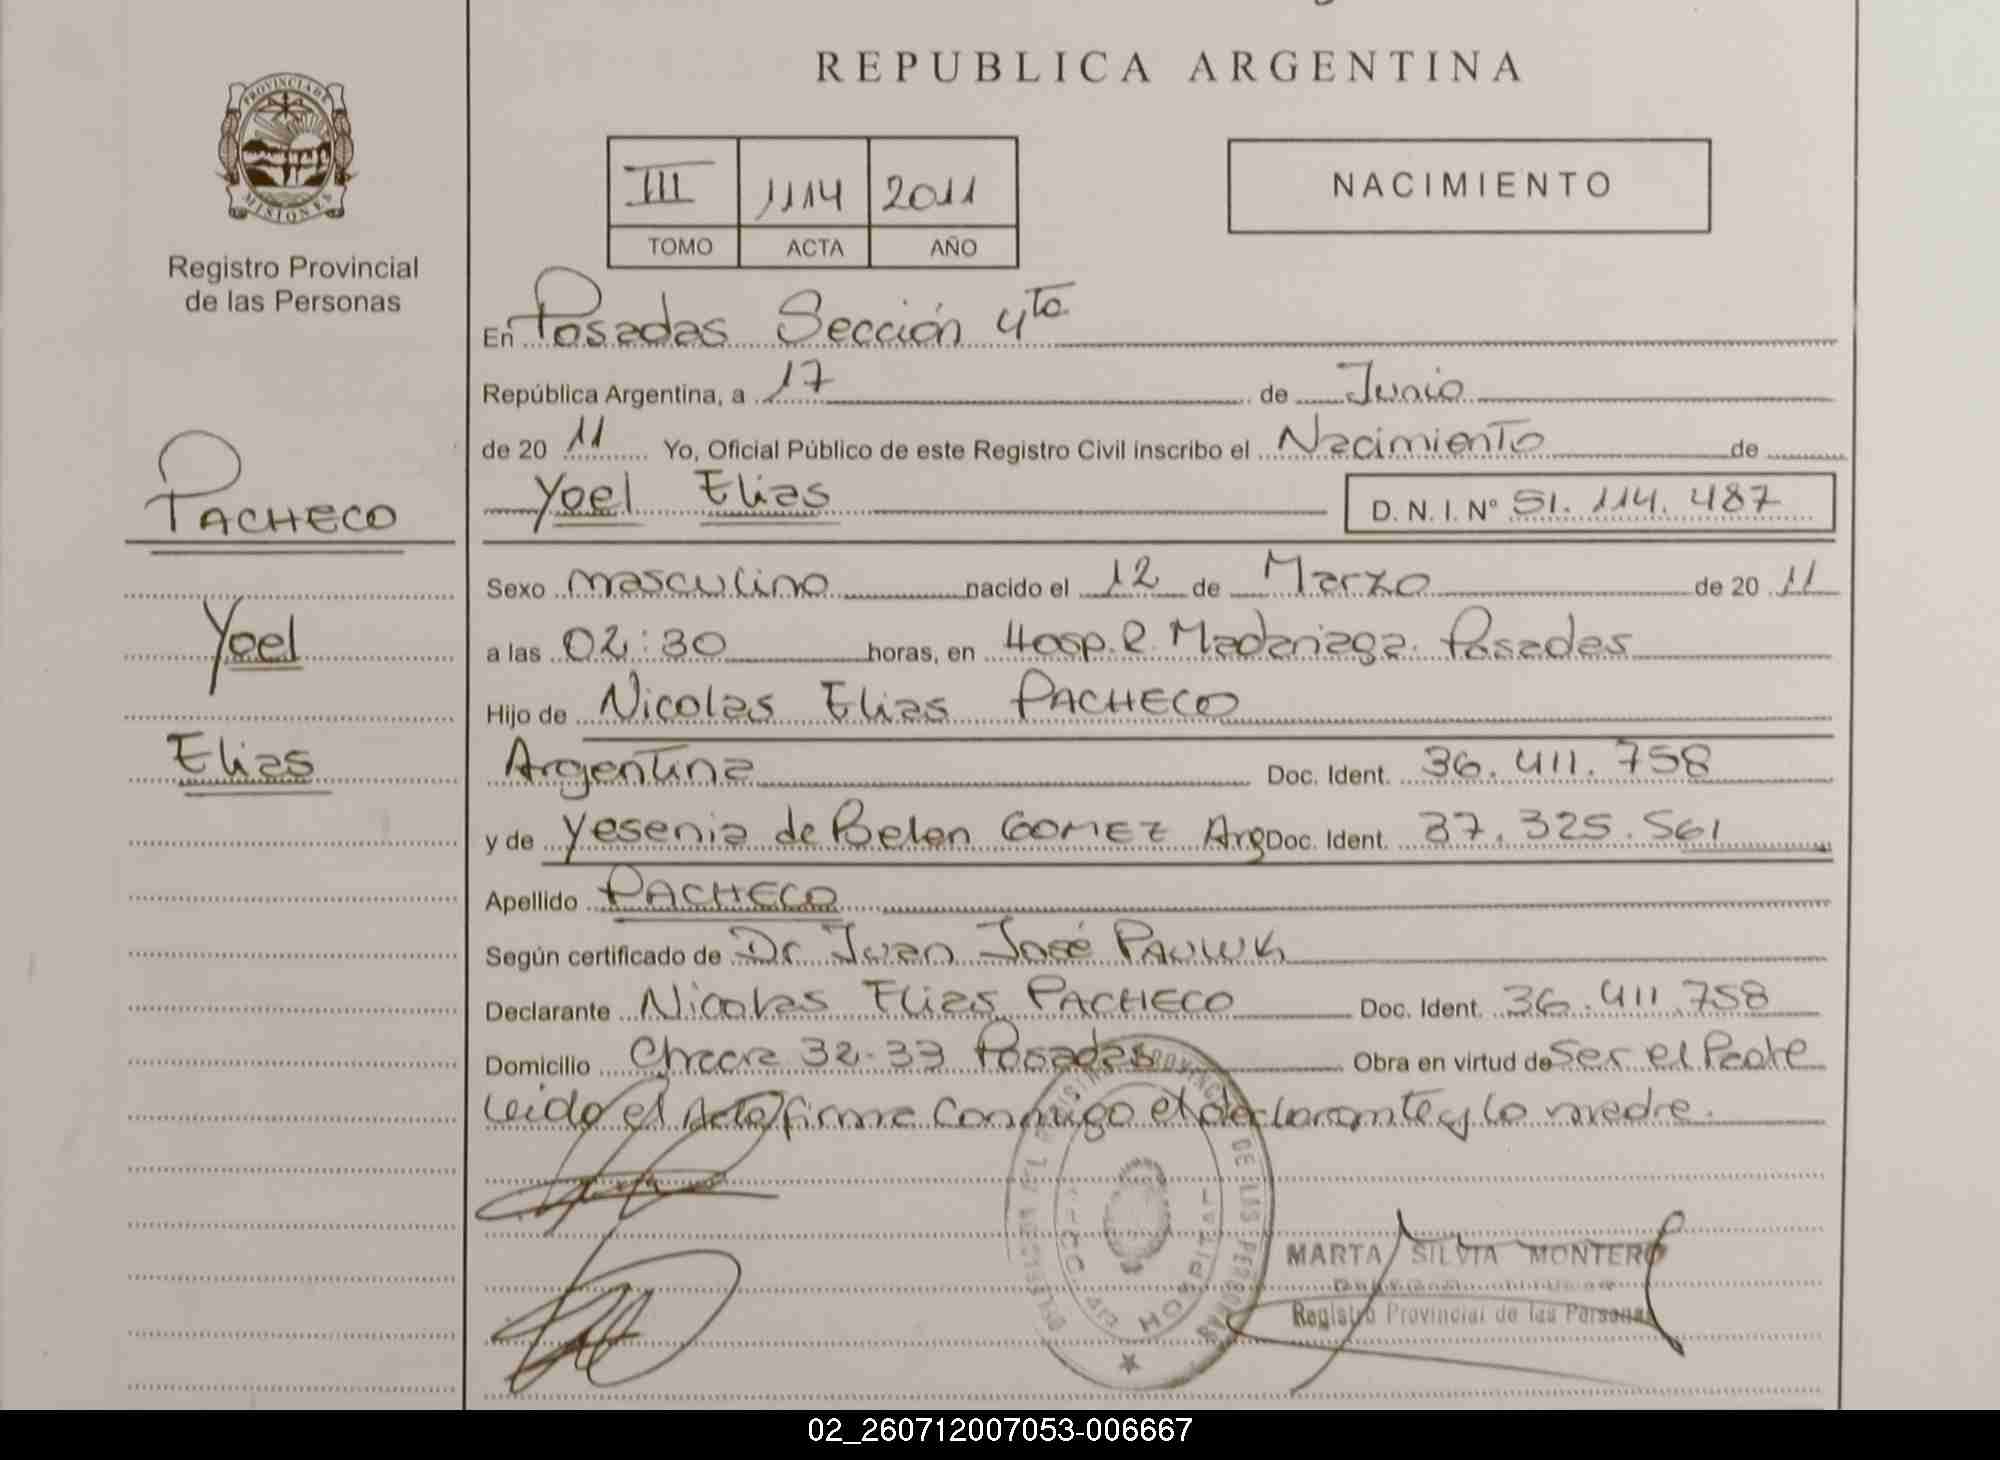 REPUBLICA ARGENTINA
PROVINCIA DE
MISIONES
Registro Provincial
de las Personas
III 1114 2011
TOMO ACTA AÑO
NACIMIENTO
En Posadas Sección 4ta
República Argentina, a 17 de Junio
de 20 11 Yo, Oficial Público de este Registro Civil inscribo el Nacimiento de
Yoel Elias D. N. I. N° 51.114.487
PACHECO
Yoel
Elias
Sexo masculino nacido el 12 de Marzo de 20 11
a las 02:30 horas, en Hosp. R. Madariaga. Posadas
Hijo de Nicolas Elias PACHECO
Argentina Doc. Ident. 36.411.758
y de Yesenia de Belen GOMEZ Arg Doc. Ident. 37.325.561
Apellido PACHECO
Según certificado de Dr. Juan José PAWUK
Declarante Nicolas Elias PACHECO Doc. Ident. 36.411.758
Domicilio Chacra 32-33 Posadas Obra en virtud de ser el Padre
Leido el Acta firma conmigo el declarante y la madre.
DE LAS PERSONAS
HOSPITAL
MARTA SILVIA MONTERO
Registro Provincial de las Personas
02_260712007053-006667